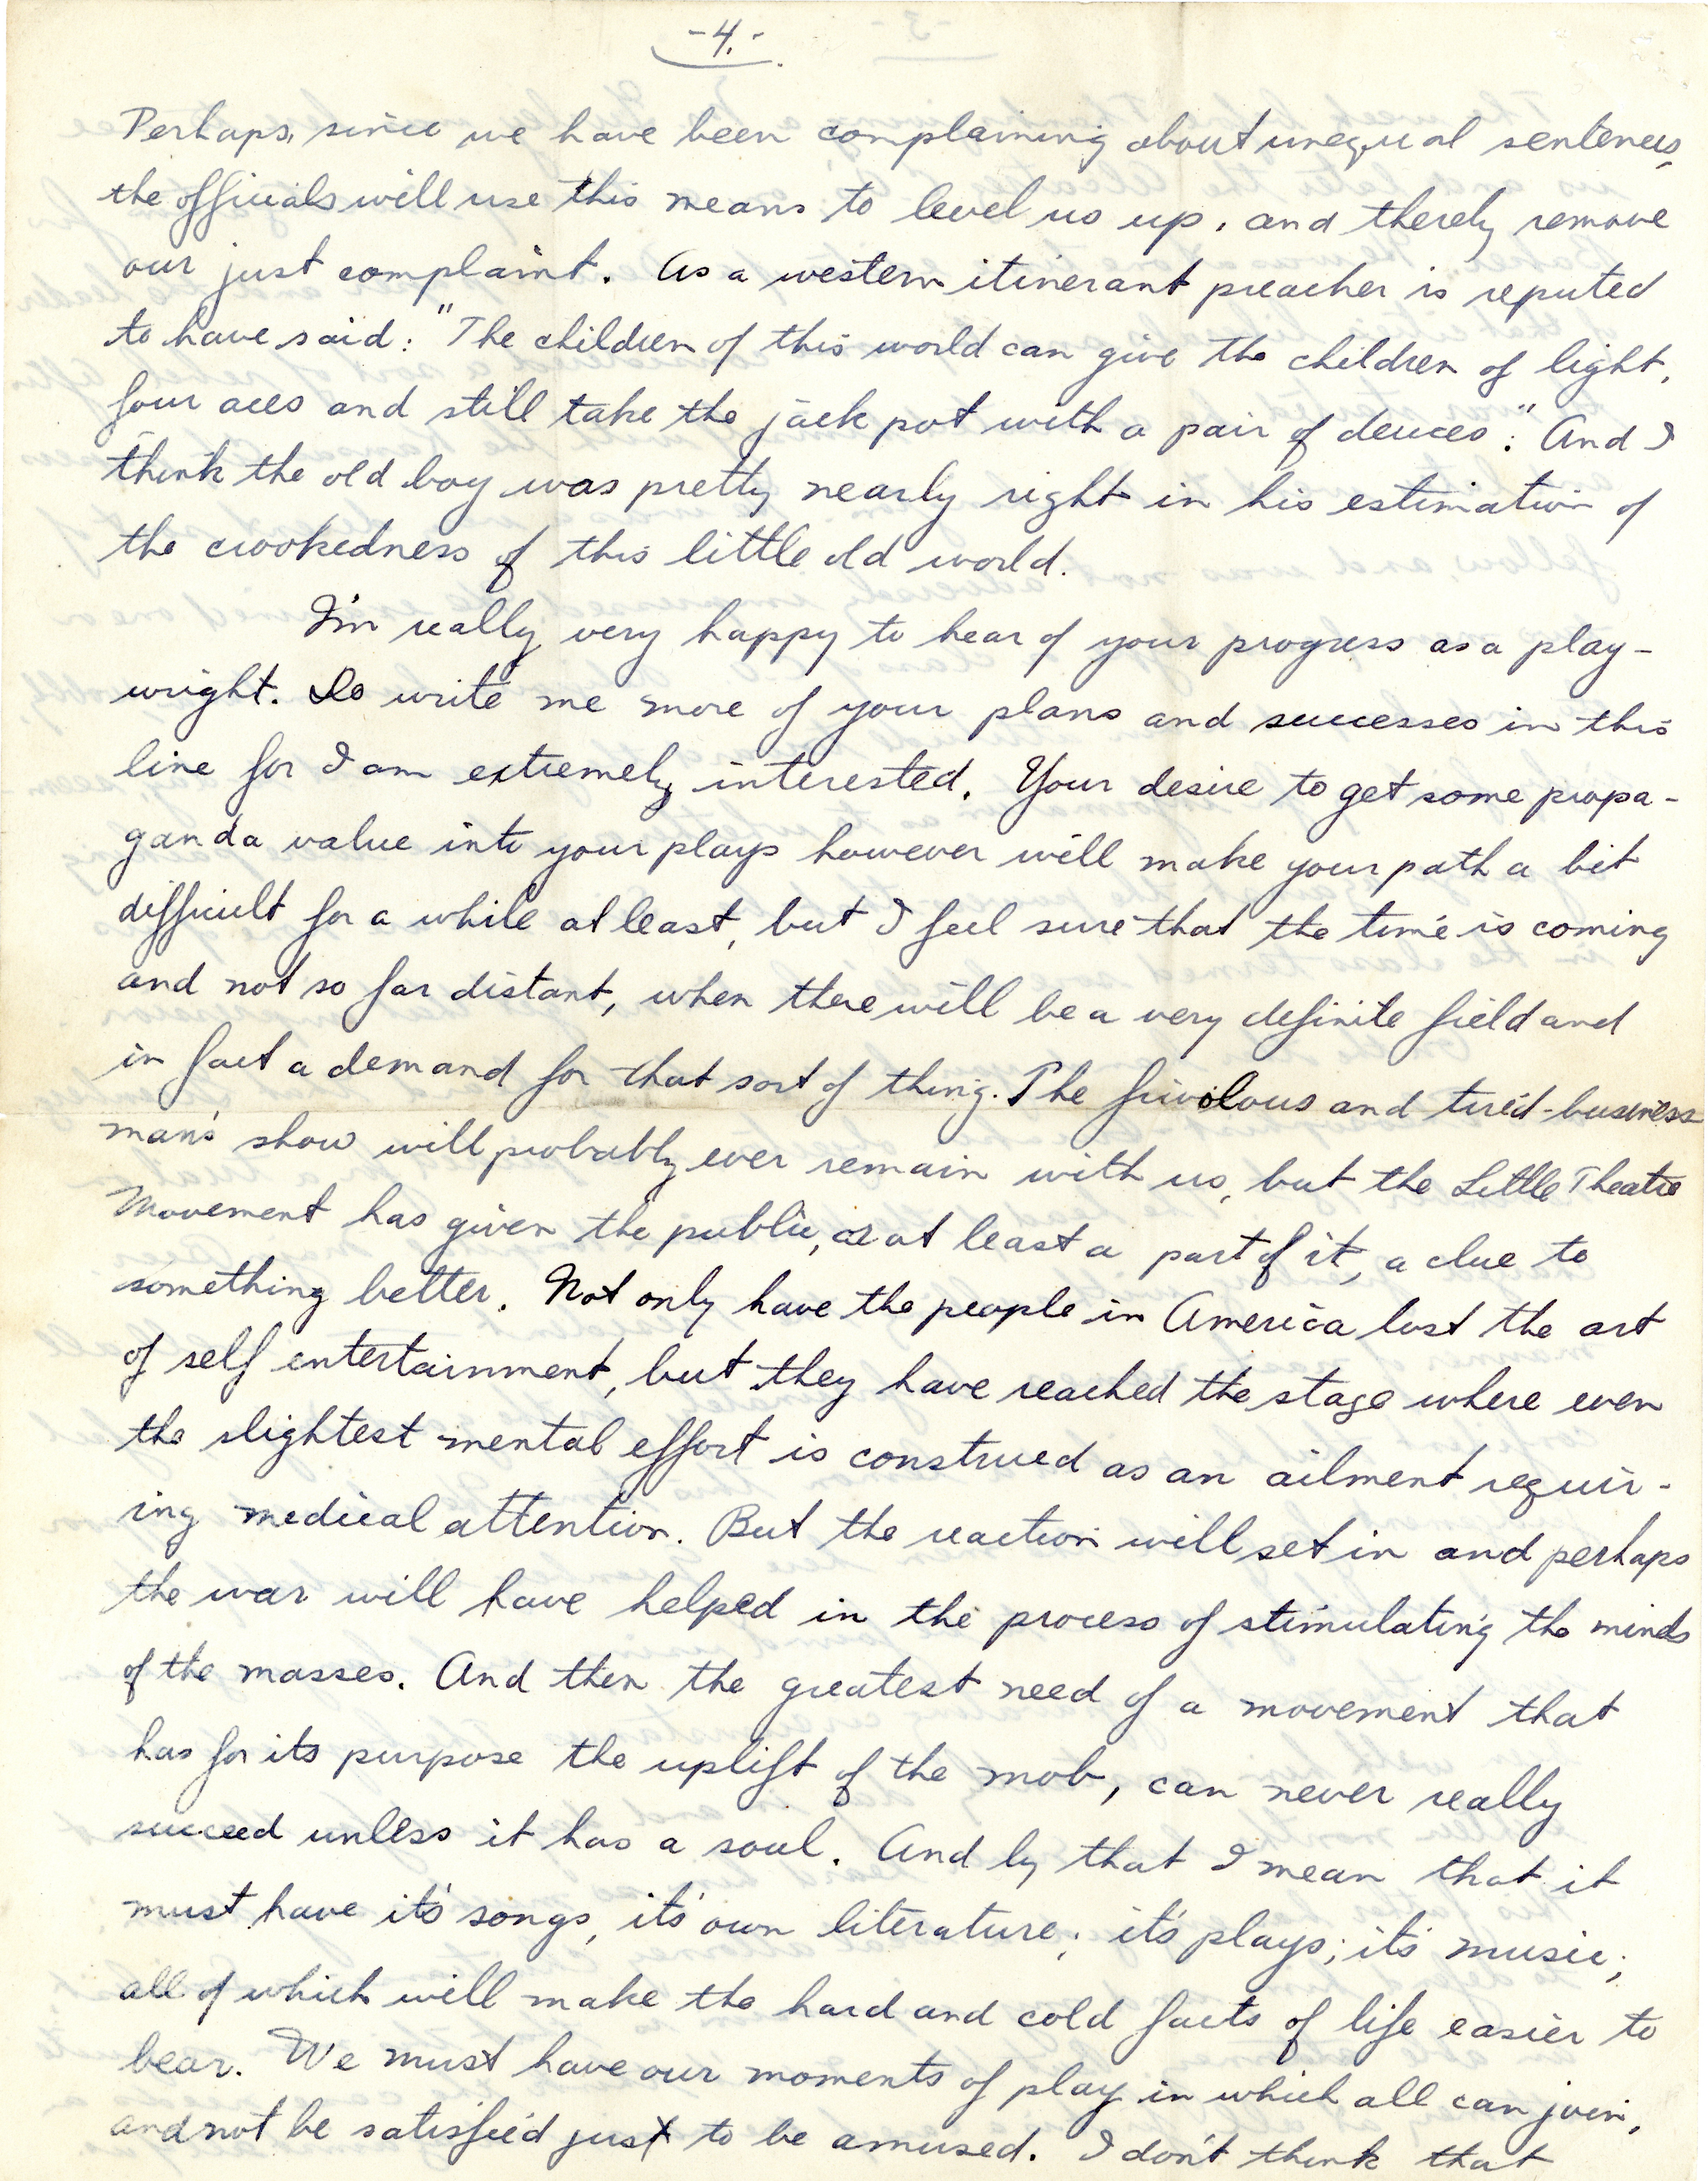 -4.-
Perhaps, since we have been complaining about unequal sentences,
the officials will use this means to level us up, and therely remove
our just complaint. As a western itinerant preacher is reputed
to have said: "The children of this world can give the children of light,
four aces and still take the jack pot with a pair of deuces". And I
think the old boy was pretty nearly right in his estimation of
the crookedness of this little old world.
I'm really very happy to hear of your progress as a play-
wright. Do write me more of your plans and successes in this
line for I am extremely interested. Your desire to get some propa-
ganda value into your plays however will make your path a bit
difficult for a while at least, but I feel sure that the time is coming
and not so far distant, when there will be a very definite field and
in fact a demand for that sort of thing. The frivolous and tired-business
man's show will probably ever remain with us, but the Little Theatre
Movement has given the public, or at least a part of it, a clue to
something better. Not only have the people in America lost the art
of self entertainment, but they have reached the stage where even
the slightest mental effort is construed as an ailment requir-
ing medical attention. But the reaction will set in and perhaps
the war will have helped in the process of stimulating the minds
of the masses. And then the greatest need of a movement that
has for its purpose the uplift of the mob, can never really
succeed unless it has a soul. And by that I mean that it
must have it's songs, it's own literature; it's plays; it's music;
all of which will make the hard and cold facts of life easier to
bear. We must have our moments of play in which all can join,
and not be satisfied just to be amused. I don't think that